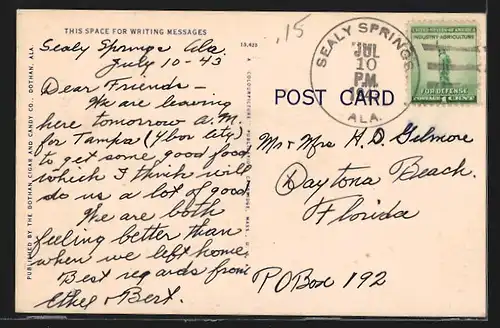 THIS SPACE FOR WRITING MESSAGES
.15
Sealy Springs Ala.
13,623
July 10-43
Dear Friends-
We are leaving
here tomorrow A.M.
for Tampa (Ybor city)
to get some good food
which I think will
do us a lot of good
We are both
feeling better than
when we left home
Best regards from
Ethel & Bert.
PUBLISHED BY THE DOTHAN CIGAR AND CANDY CO., DOTHAN, ALA.
POST CARD
SEALY SPRINGS
JUL
10
P.M.
ALA.
INDUSTRY AGRICULTURE
FOR DEFENSE
Mr & Mrs H. D. Gilmore
Daytona Beach.
Florida
PO Box 192